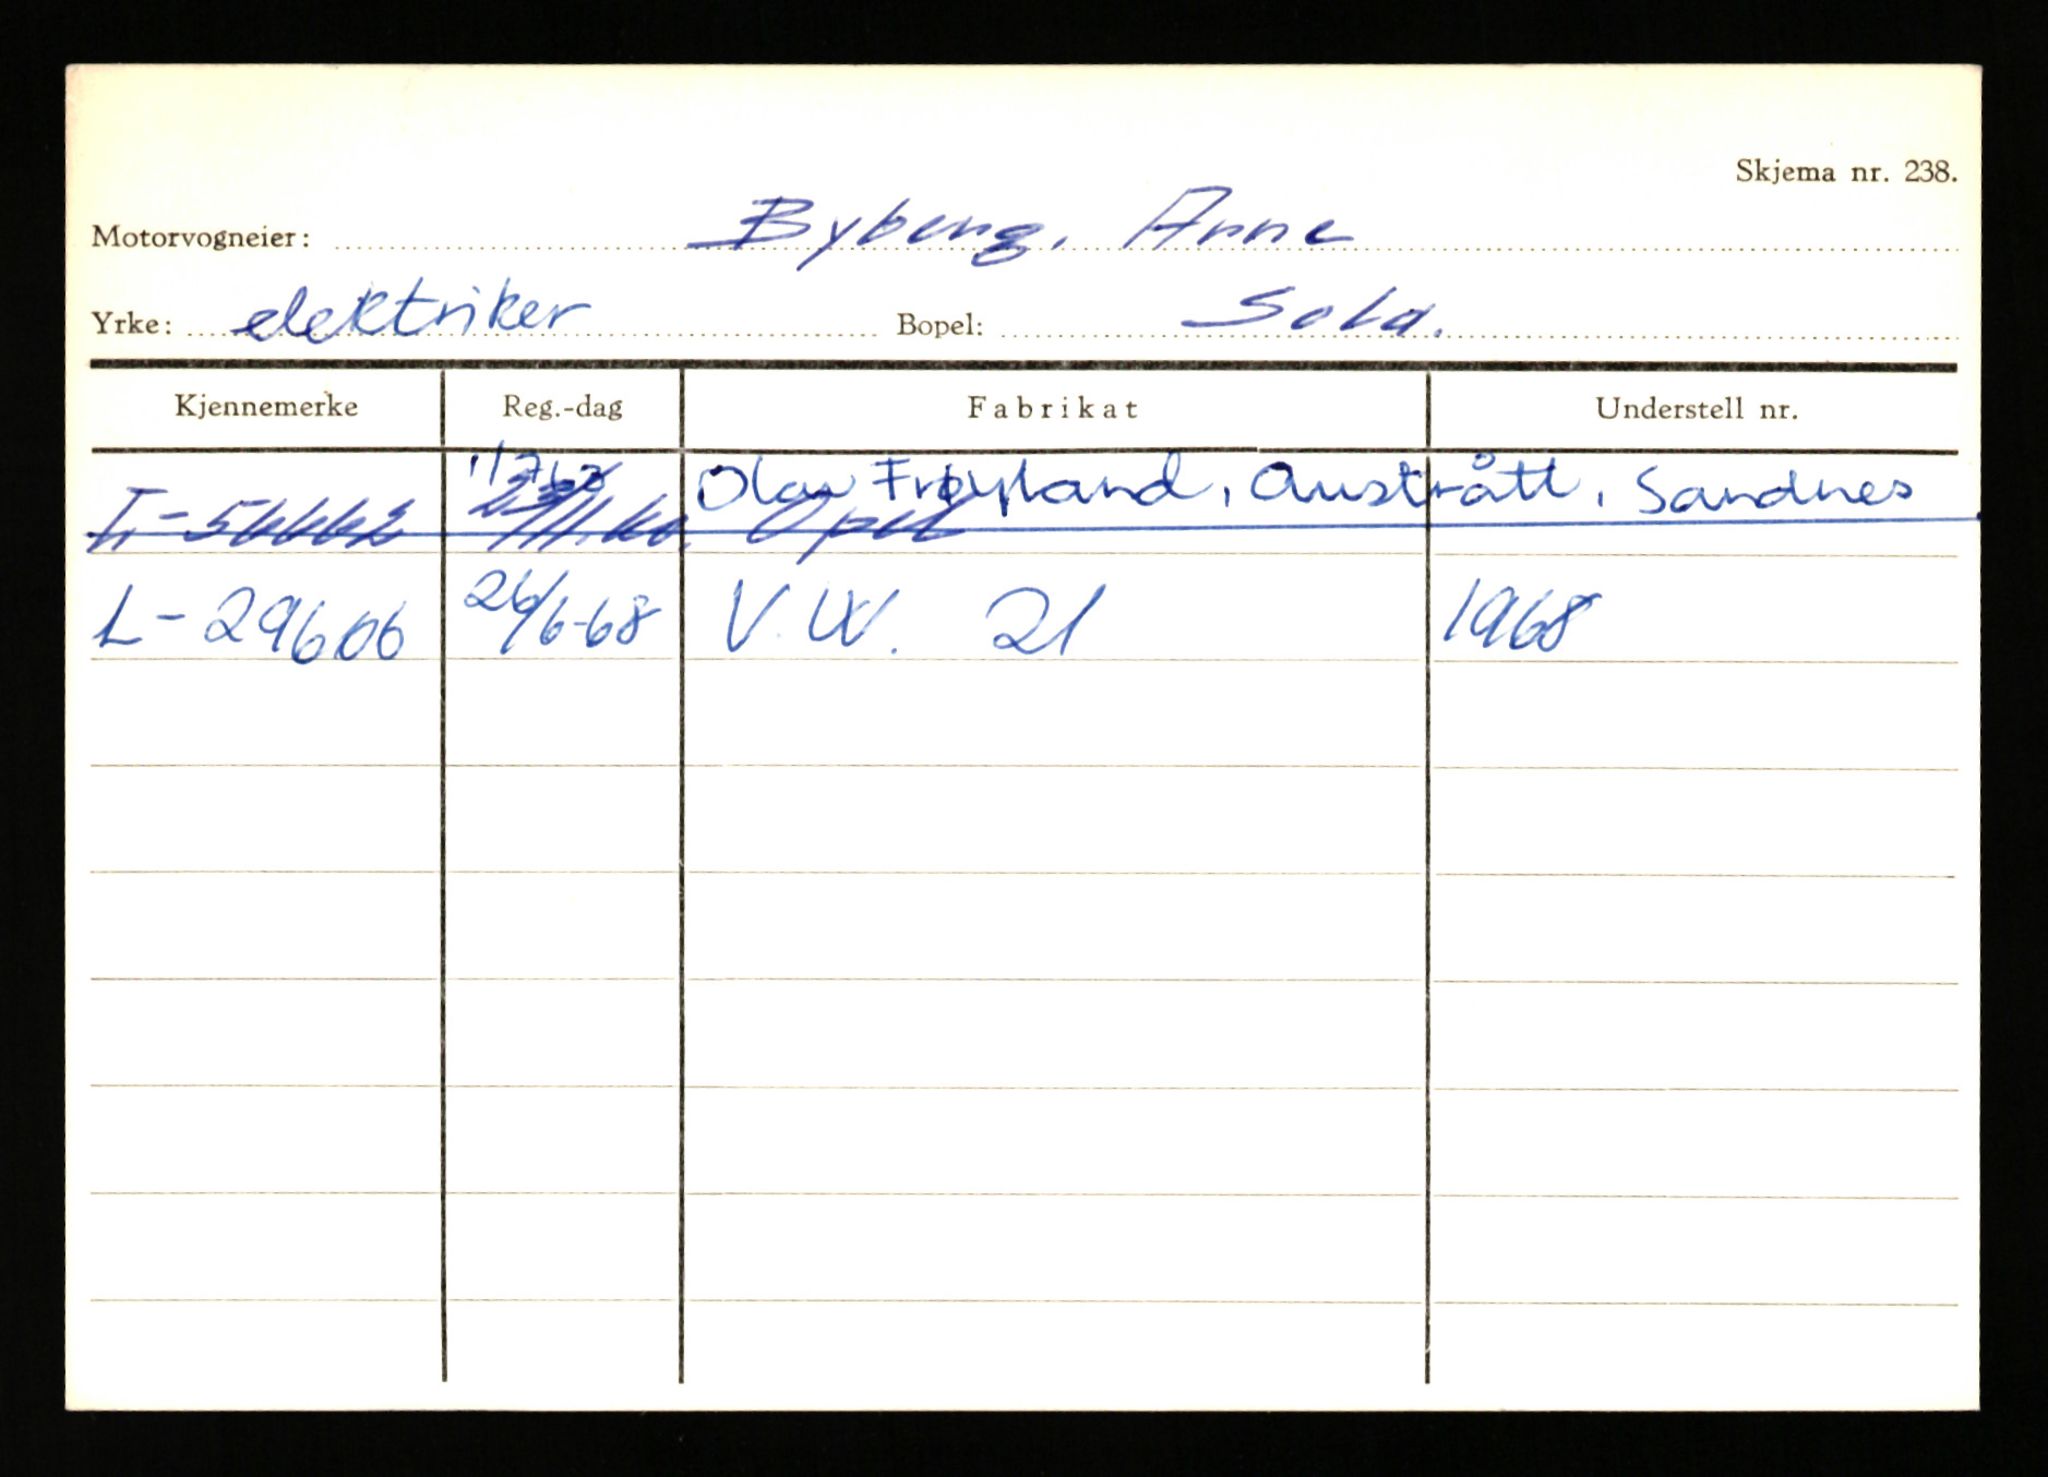 Skjema nr. 238.
Motorvogneier: Byberg, Arne
Yrke: elektriker Bopel: Sola.
Kjennemerke Reg.-dag Fabrikat Understell nr.
Olav Frøyland, Austrått, Sandnes
Opel
L-29606 26/6-68 V.W. 21 1968